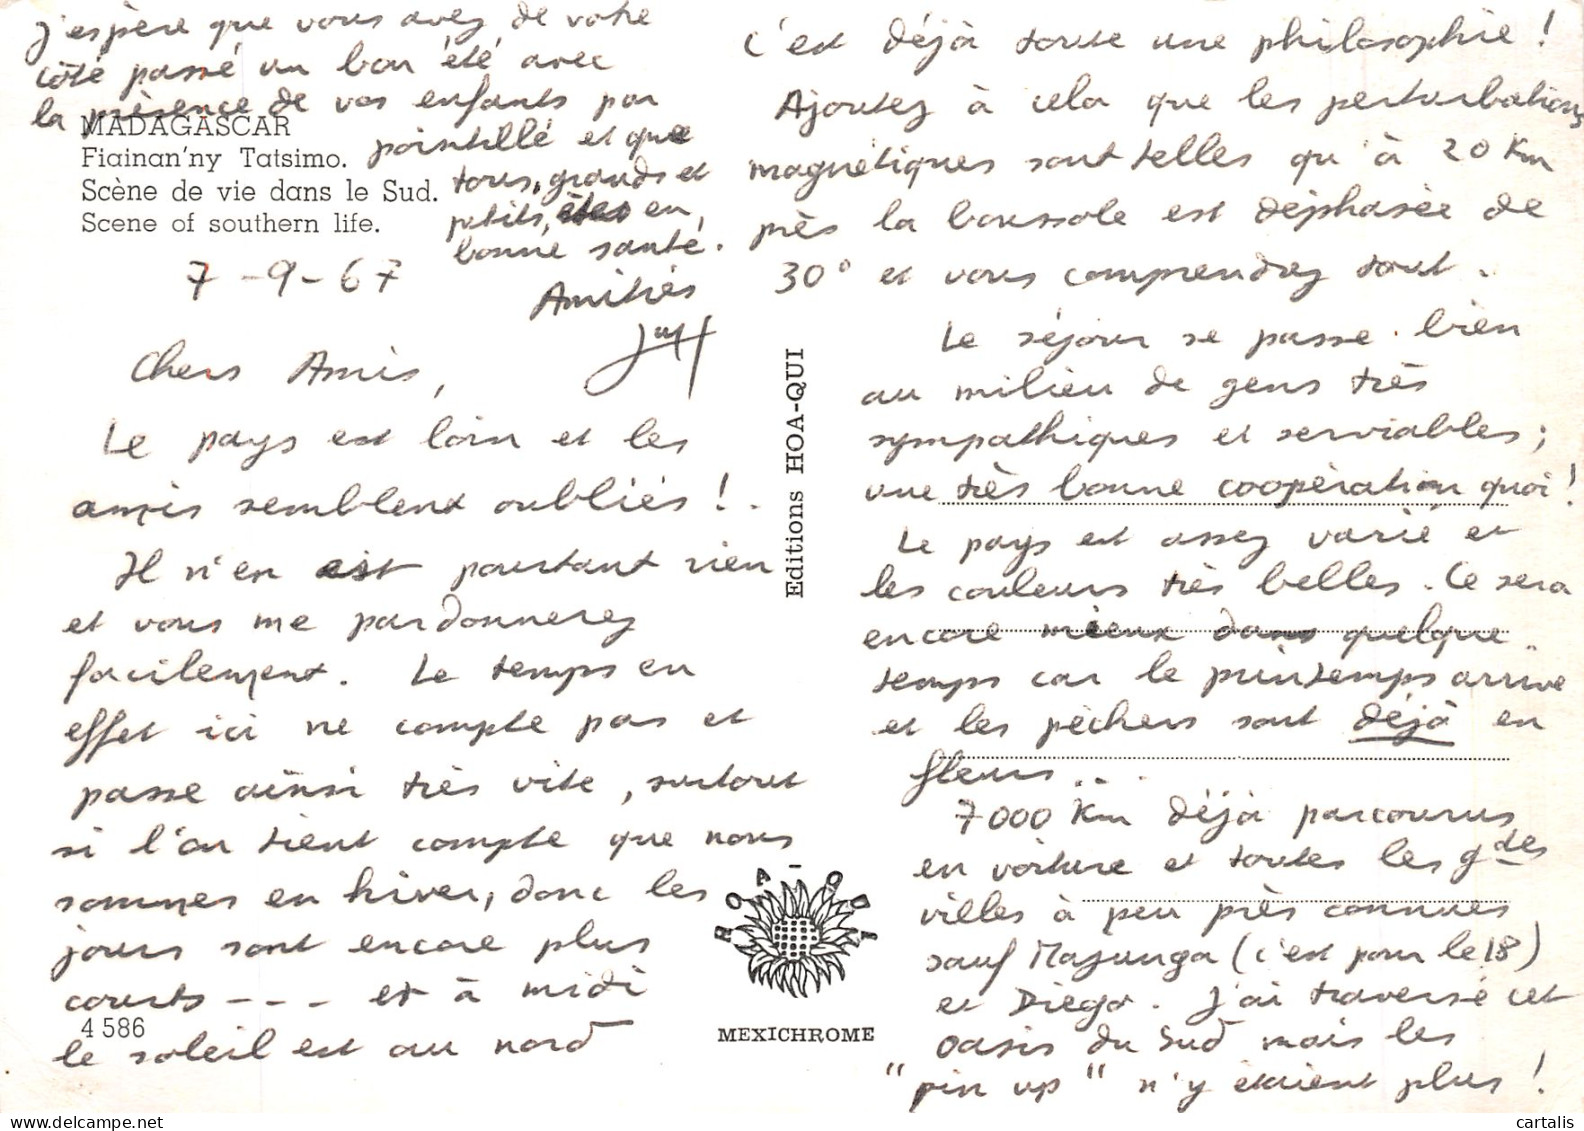 MADAGASCAR
Fiainan'ny Tatsimo.
Scène de vie dans le Sud.
Scene of southern life.
7-9-67
Chers Amis,
Le pays est loin et les
amis semblent oubliés !.
Il n'en est pourtant rien
et vous me pardonnerez
facilement. Le temps en
effet ici ne compte pas et
passe ainsi très vite, surtout
si l'on tient compte que nous
sommes en hiver, donc les
jours sont encore plus
courts --- et à midi
le soleil est au nord
c'est déjà toute une philosophie !
Ajoutez à cela que les perturbations
magnétiques sont telles qu'à 20 Km
près la boussole est déphasée de
30° et vous comprendrez tout.
Le séjour se passe bien
au milieu de gens très
sympathiques et serviables ;
une très bonne coopération quoi !
Le pays est assez varié et
les couleurs très belles. Ce sera
encore mieux dans quelque
temps car le printemps arrive
et les pêchers sont déjà en
fleurs...
7000 Km déjà parcourus
en voiture et toutes les gdes
villes à peu près connues
sauf Majunga (c'est pour le 18)
et Diego. J'ai traversé cet
oasis du Sud mais les
"pin up" n'y étaient plus !
J'espère que vous avez de votre
côté passé un bon été avec
la présence de vos enfants par
pointillé et que
tous, grands et
petits, êtes en
bonne santé.
Amitiés
Editions HOA-QUI
HOA-QUI
MEXICHROME
4 586
cartalis.com